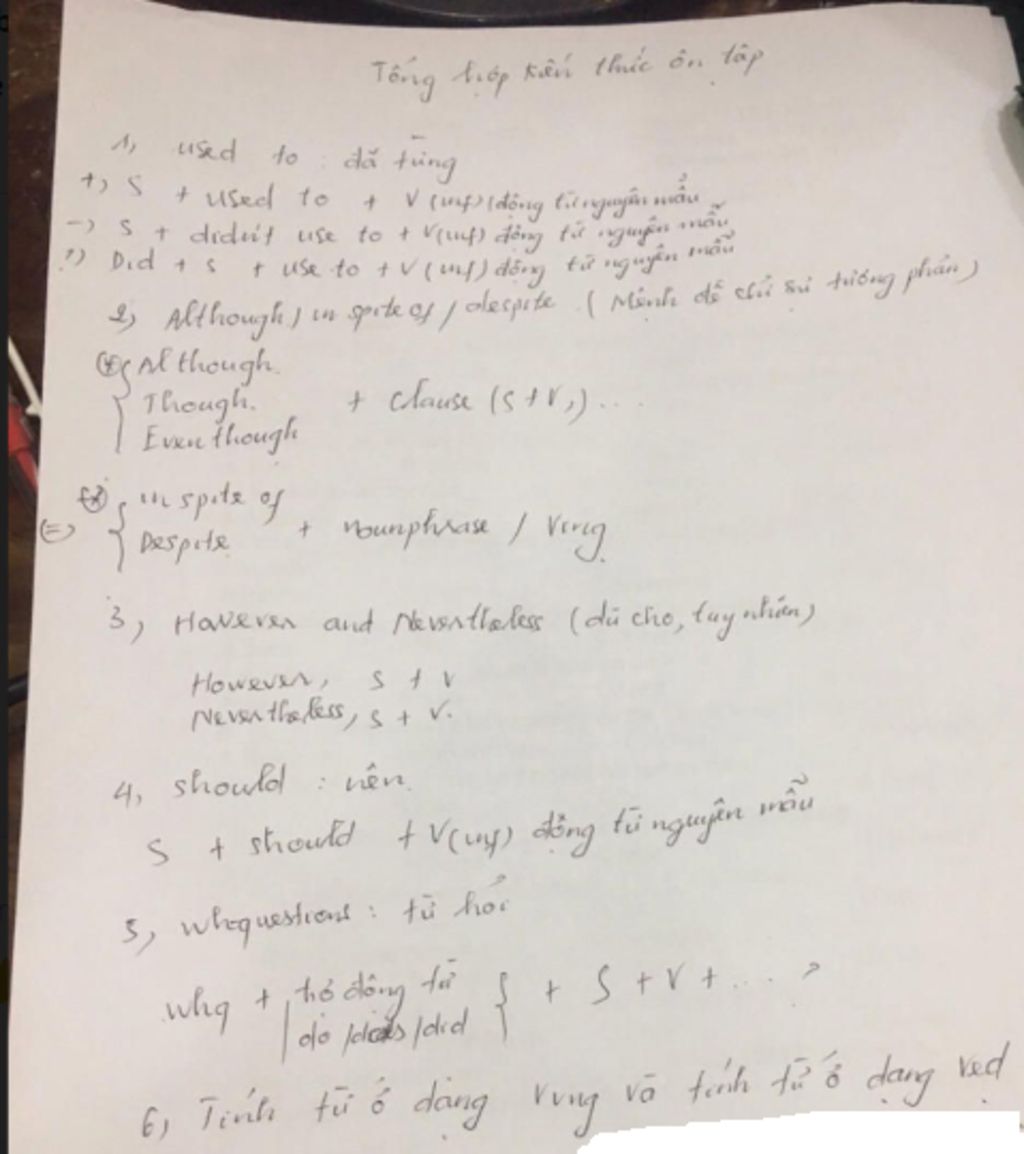 Tổng hợp kiến thức ôn tập
1, used to : đã từng
+) S + used to + V (inf) (động từ nguyên mẫu
-) S + didn't use to + V(inf) động từ nguyên mẫu
?) Did + S + use to + V (inf) động từ nguyên mẫu
2) Although / in spite of / despite . ( Mệnh đề chỉ sự tương phản )
Although.
Though. + clause (S + V,) ...
Even though
in spite of
(=) Despite + nounphrase / Ving
3, However and Nevertheless (dù cho, tuy nhiên)
However, S + V
Nevertheless, S + V.
4, should : nên.
S + should + V(inf) động từ nguyên mẫu
5, whquestions : từ hỏi
whq + trợ động từ + S + V + ... ?
do /does /did
6, Tính từ ở dạng Ving và tính từ ở dạng Ved